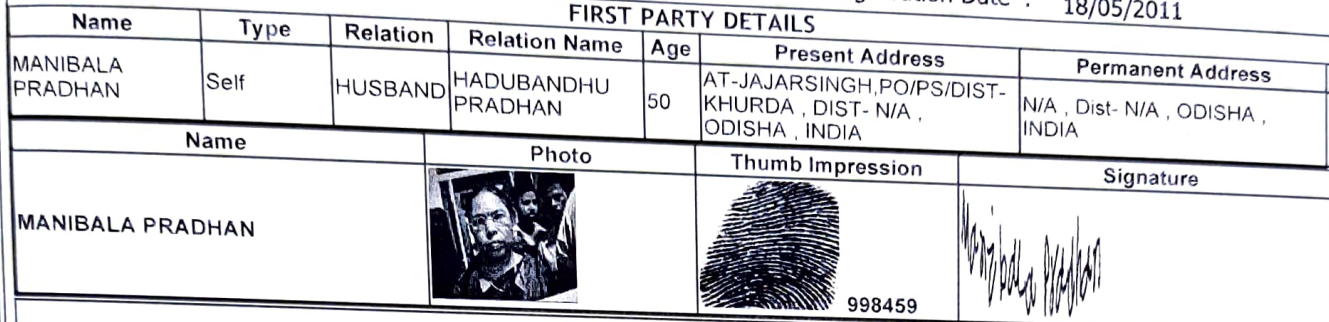 Date : 18/05/2011
FIRST PARTY DETAILS
Name Type Relation Relation Name Age Present Address Permanent Address
MANIBALA PRADHAN Self HUSBAND HADUBANDHU PRADHAN 50 AT-JAJARSINGH,PO/PS/DIST-KHURDA , DIST- N/A , ODISHA , INDIA N/A , Dist- N/A , ODISHA , INDIA
Name Photo Thumb Impression Signature
MANIBALA PRADHAN 998459 Manibala Pradhan